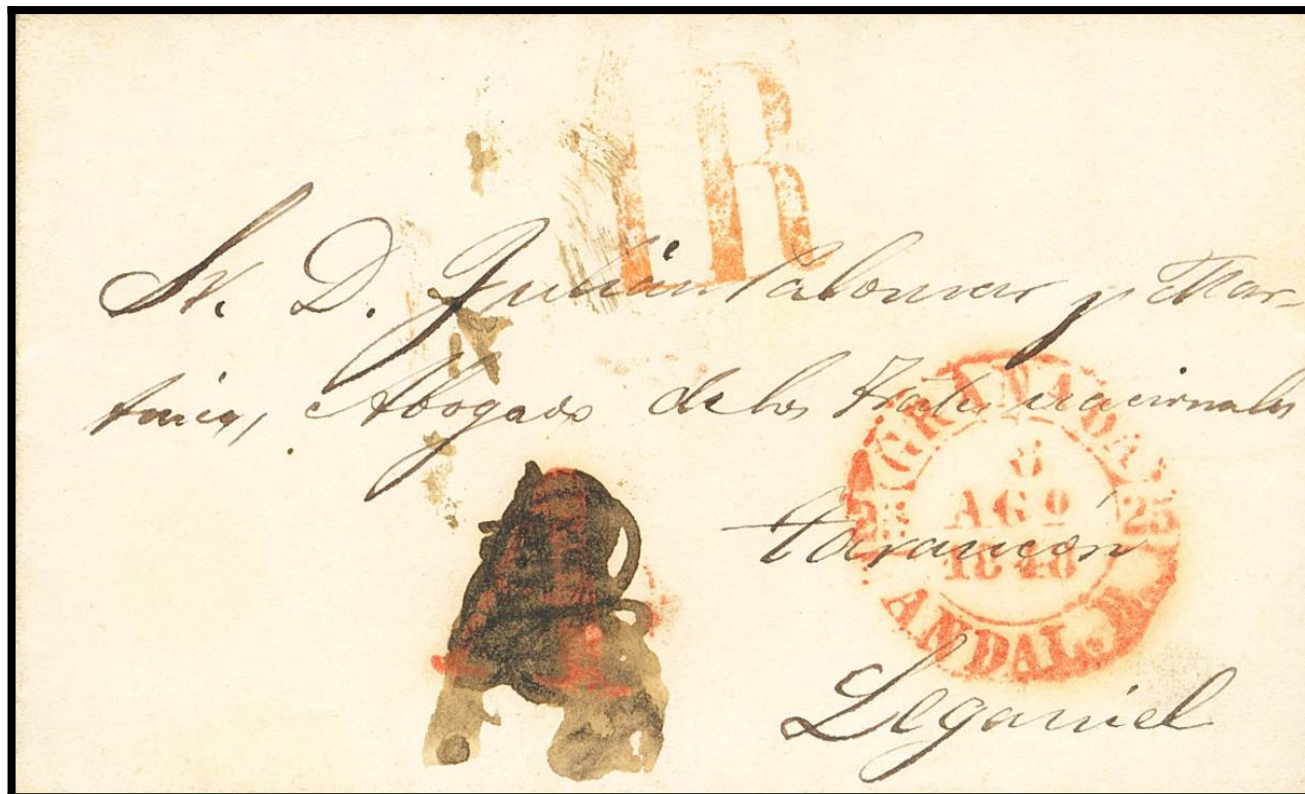 1R
Sr. D. Julián Palomar y Mar-
tinez, Abogado de los Trib.s nacionales
Tarancón
Leganiel
GRANADA
25 25
AGO
1848
ANDAL.B.